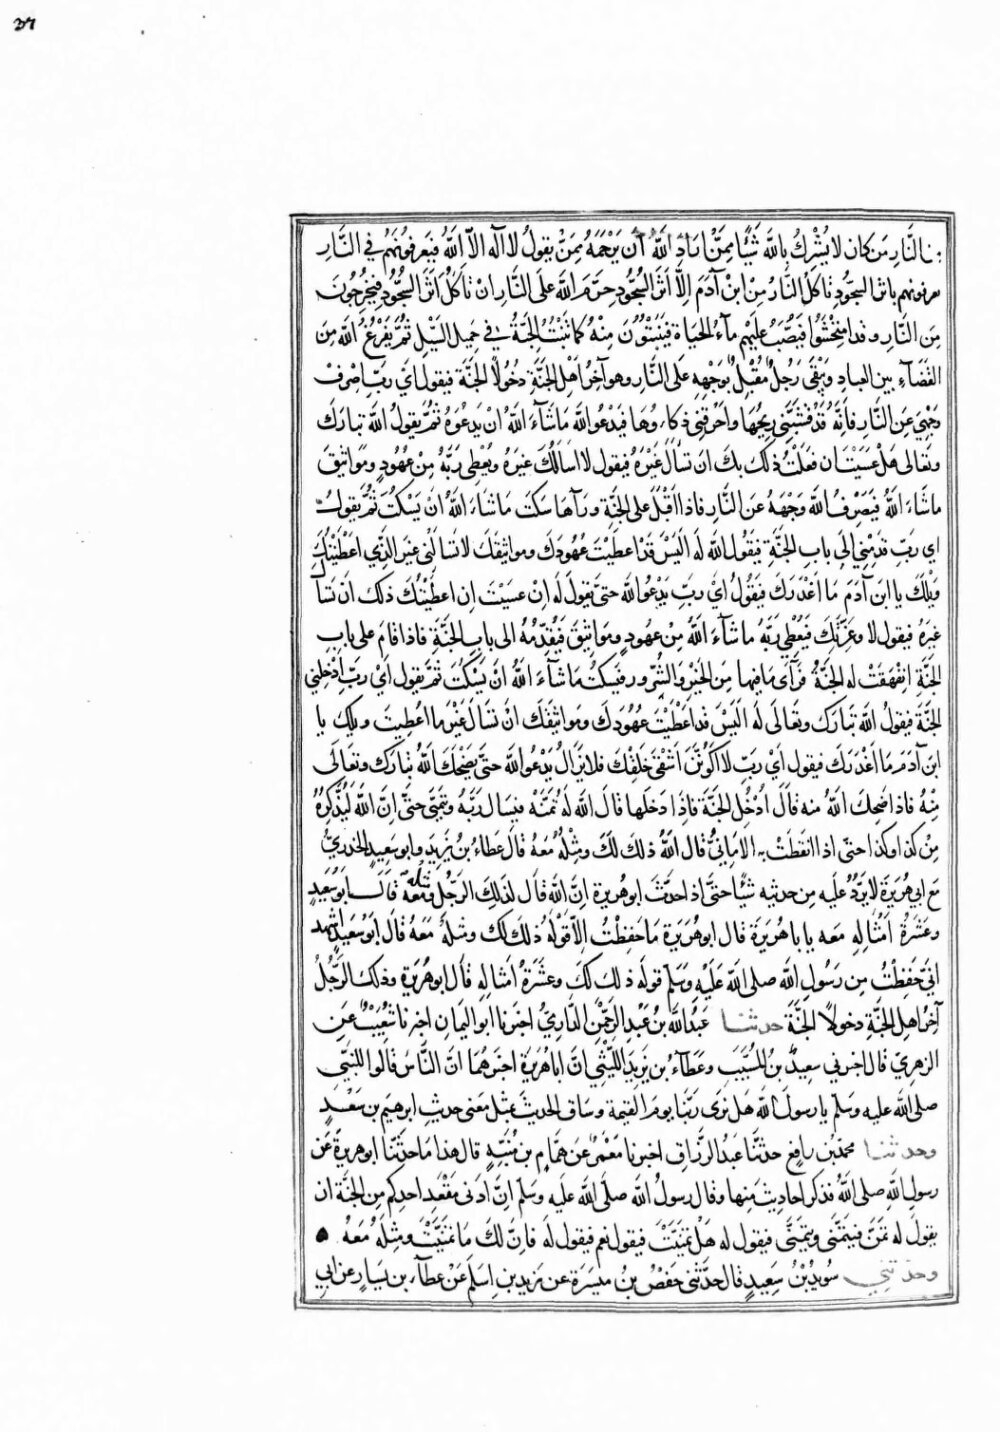 ٣٧
النَّارِ مَن كان لا يُشْرِكُ بالله شَيْئًا مِمَّنْ ارَادَ الله أن يَرْحَمَهُ مِمَّنْ يقولُ لا اله الّا الله فيَعرفُونَهُم فى النَّارِ
يعرفونهم باثر السجُود تاكلُ النَّارُ مِنْ ابْنِ آدَمَ اِلَّا أثَرَ السُّجُودِ حرَّمَ الله على النَّارِ انْ تاكُلَ أثَرَ السُّجُودِ فيُخْرَجُونَ
مِنَ النَّارِ وقد امتُحِشُوا فيُصَبُّ عليهم مآءُ الحيَاةِ فيَنبتُونَ مِنْهُ كما تَنْبُتُ الحِبَّةُ فِي حَمِيل السَّيْلِ ثُمَّ يَفْرُغُ الله مِنَ
القَضَآءِ بين العبادِ ويَبْقَى رَجُلٌ مُقْبِلٌ بوَجْهِهِ عَلَى النَّارِ وهو آخرُ اهْلِ الجَنَّةِ دخُولاً الجَنَّةَ فيقول أيْ رَبِّ اصْرِفْ
وَجْهِي عَنِ النَّارِ فاِنَّهُ قَدْ قَشَبَنِي رِيحُهَا واَحْرَقَنِي ذكاؤُهَا فيَدْعُو الله مَاشَآءَ اللهُ انْ يَدْعُوَهُ ثُمَّ يقولُ الله تبارَكَ
وتعَالى هَلْ عسَيْتَ ان فعَلتُ ذلكَ بكَ انَ تسْألَ غَيْرَهُ فيقول لا اسَالُكَ غيرَهُ ويُعْطِي رَبَّهُ مِنْ عهُودٍ ومَوَاثِيقَ
ماشَآءَ اللهُ فيَصْرِفُ الله وَجْهَهُ عنَ النَّارِ فاذا اقْبَلَ عَلَى الجَنَّةِ ورَآهَا سَكتَ مَا شَاءَ اللهُ انْ يَسْكُتَ ثُمَّ يقولُ
اي رَبِّ قدِّمْنِي اِلَى بابِ الجَنَّةِ فيقُولُ الله لَه اليْسَ قَدْ اعطَيْتَ عهُودَكَ ومواثيقَكَ لا تسالُنِى غيرَ الذِّي اعْطَيْتُكَ
وَيْلَكَ يا ابنَ آدَمَ مَا اَغْدَرَكَ فيَقُولُ اَيْ رَبِّ يَدْعُو الله حتّى يقولَ لَه اِنْ عسَيْتَ اِن اعطَيْتُكَ ذلكَ انْ تسْأ
غيرَهُ فيقول لا وعِزَّتِكَ فيُعْطِي رَبَّهُ ما شآءَ اللهُ مِنْ عهُودٍ ومَوَاثِيقَ فيُقدِّمُهُ الى باب الجنَّةِ فاذا قامَ على باب
الجنَّةِ انفهَقَتْ له الجنَّةُ فرَآى مَا فيها مِنَ الخيْرِ والسُّرورِ فيسكتُ مَا شآءَ اللهُ انْ يَسْكُتَ ثُمَّ يقول اَيْ رَبِّ اَدْخِلنِي
الجنَّةَ فيقولُ الله تبَارَكَ وتعَالَى لَه اليْسَ قَد اَعْطَيْتَ عهُودَكَ ومَواثيقَكَ انْ لا تسَالَ غيْرَمَا اعطِيتَ ويلكَ يا
ابنَ آدَمَ مَا اَغْدَرَكَ فيقول اَيْ رَبِّ لا اكُونُنَّ اَشْقَى خَلْقِكَ فلا يزَالُ يَدْعُو الله حتّى يَضْحَكَ الله تبارَكَ وتعَالَى
مِنْهُ فاذا ضَحِكَ الله منه قالَ اُدْخُلِ الجنَّةَ فاِذَا دَخلَها قالَ الله لَهُ تَمَنَّهْ فيَسَال رَبَّهُ ويَتَمَنَّى حتّى اِنَّ الله لَيُذَكِّرُهُ
مِنْ كذا وكذا حتى اذا انقَطَعَتْ به الامَانِيُّ قال اللهُ ذلكَ لَكَ ومِثْلُهُ مَعَهُ قالَ عَطاءُ بْنُ يَزِيدَ وابو سَعِيدٍ الخدرِيُّ
مَعَ ابي هُرَيْرَةَ لا يَرُدُّ عَلَيه مِن حديثِهِ شيْأً حَتَّى اذا حدَّثَ ابوهريرة اِنَّ الله قالَ لذَلِكَ الرَّجُلِ ومثلُهُ مَعَهُ قالَ ابوسَعِيدٍ
وعَشَرَةُ اَمْثَالِهِ مَعَه يا با هُرَيْرَةَ قال ابوهُرَيْرَةَ مَا حَفِظْتُ اِلّا قوْلَهُ ذلكَ لكَ ومثلُهُ مَعَهُ قال ابَوُ سَعِيدٍ اشْهد
انِّي حَفِظْتُ مِن رَسُولِ الله صلى الله عَلَيْهِ وَسَلّم قولَه ذلكَ لكَ وعشَرَةُ اَمثَالِهِ قالَ ابوهُرَيْرَةَ وذلكَ الرَّجُلُ
آخِرُ اهلِ الجنَّةِ دخولاً الجنَّةَ حدثنا عَبْدُ الله بْنُ عَبْدِ الرَّحْمٰنِ الدَّارِمِيُّ اخبرنا ابواليَمانِ اخبرنا شُعَيْبٌ عنِ
الزهرِيّ قال اخبرني سعِيدُ بْنُ المُسَيَّبِ وعَطَآءُ بن يزِيدَ اللَّيْثِي انَّ ابا هُرَيْرَةَ اخبَرَهُمَا انَّ النَّاسَ قالُوا للنَّبِي
صلى الله عليه وَسَلّم يا رسولَ الله هَل نرَى رَبَّنا يومَ القيٰمَةِ وسَاق الحديثَ بمثل مَعنى حديثِ ابرهِيمَ بن سَعْدٍ
وحدثنا محمدُ بن رافِعٍ حدثَنَا عَبْدُ الرَّزَّاقِ اخبرنا مَعْمَرٌ عَنْ هَمَّامِ بن مُنَبِّهٍ قالَ هذا مَا حدَّثنَا ابو هريرةَ عَنْ
رسولِ اللهِ صلى اللهُ فذكر احادِيثَ مِنها وقال رسولُ الله صلّى الله عليه وسلّم اِنَّ ادنى مَقْعَدِ احدِكم مِنَ الجنَّةِ ان
يقولَ له تَمَنَّ فيَتَمَنَّى ويتمَنَّى فيقول له هَلْ تمنَّيْتَ فيقول نعم فيقول لَه فاِنَّ لكَ مَا تمنَّيْتَ ومِثلَهُ مَعَهُ ۝
وحدثني سُوَيْدُ بْنُ سَعِيدٍ قالَ حَدَّثَنِي حَفصُ بنُ مَيْسَرَةَ عن زيدِ بن اسلَمَ عَنْ عطَآءِ بن يَسَارٍ عن ابي